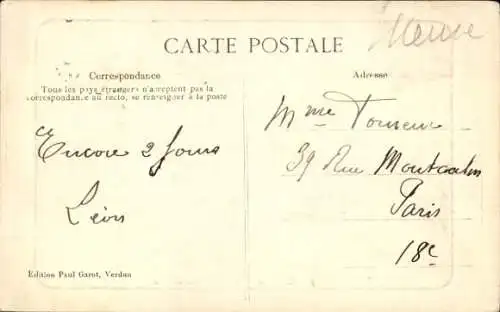 Meuse
CARTE POSTALE
Correspondance
Tous les pays étrangers n'acceptent pas la
correspondance au recto, se renseigner à la poste
Adresse
Encore 2 Jours
Léon
Mme
39 Rue Montcalm
Paris
18e
Edition Paul Garot, Verdun